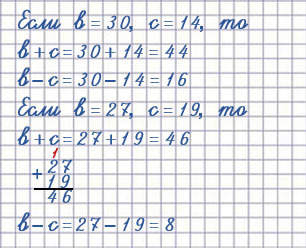 Если в = 30, с = 14, то
в + с = 30 + 14 = 44
в – с = 30 – 14 = 16
Если в = 27, с = 19, то
в + с = 27 + 19 = 46
1
+ 27
19
46
в – с = 27 – 19 = 8